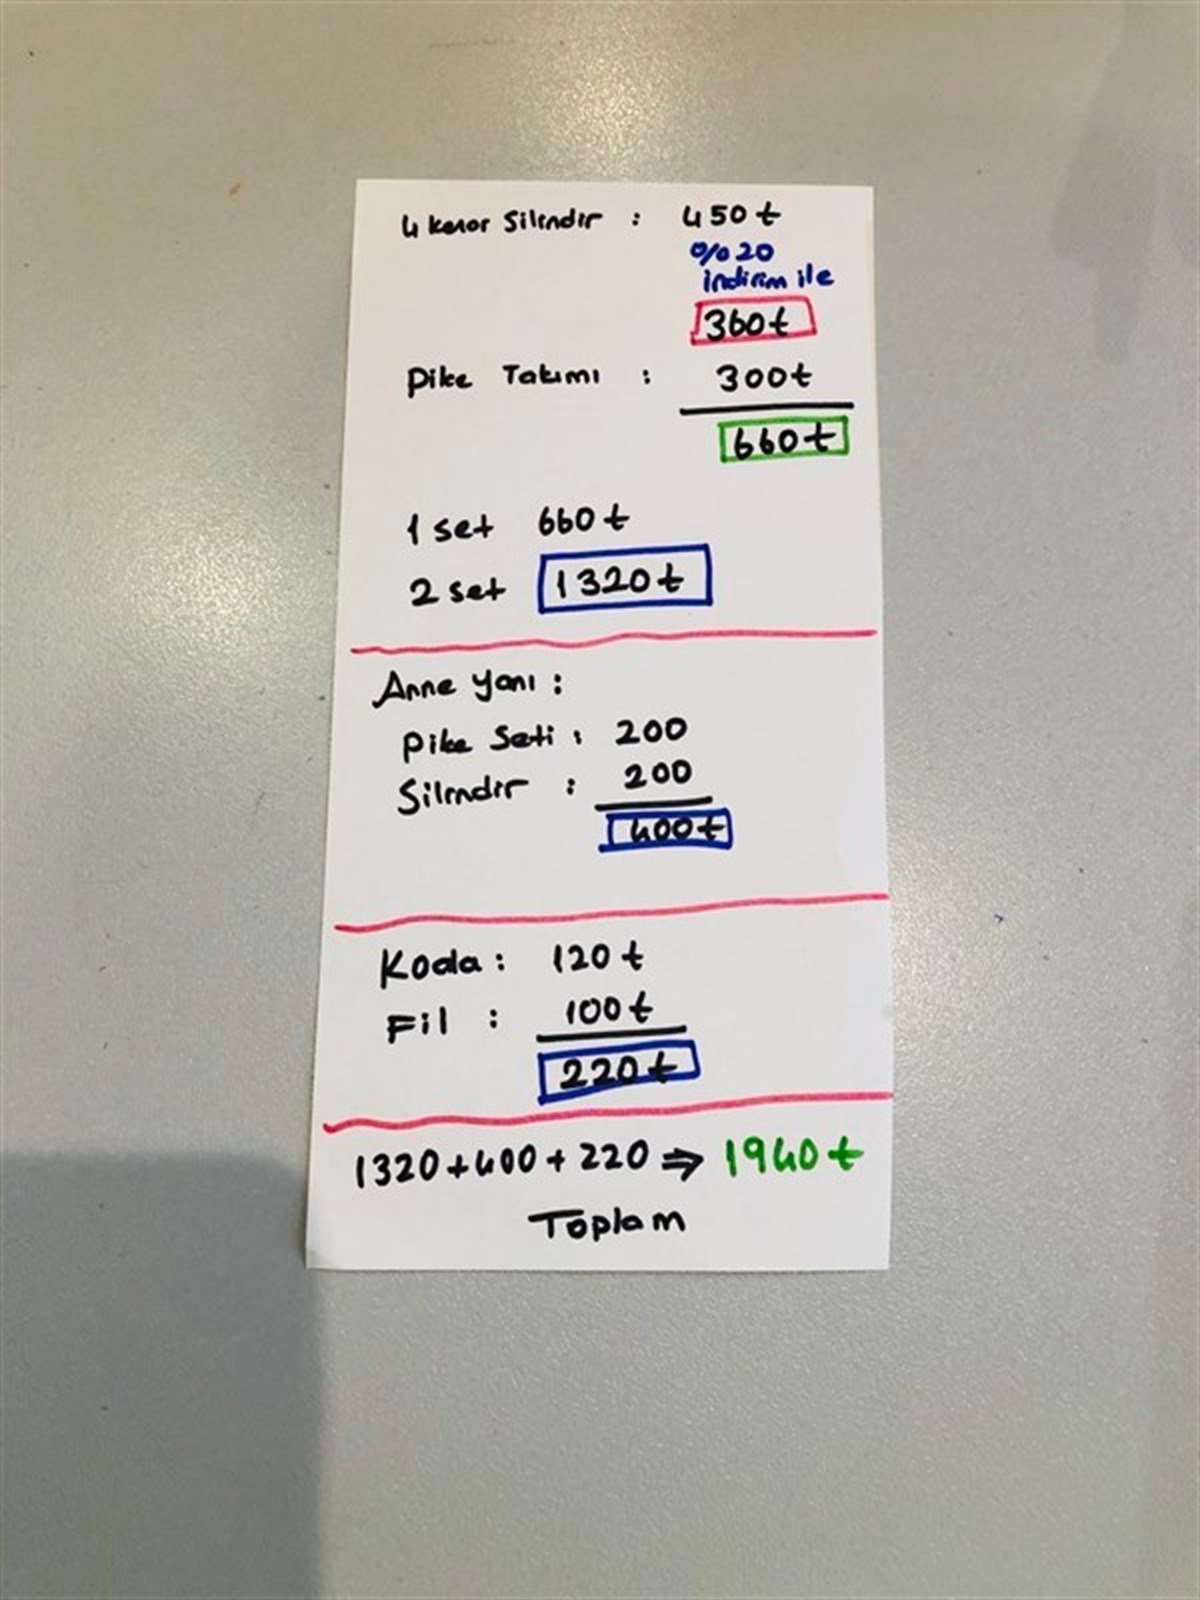 4 kenar Silindir : 450 ₺
%20
indirim ile
360₺
Pike Takımı : 300₺
660₺
1 set 660₺
2 set 1320₺
Anne yanı :
Pike Seti : 200
Silindir : 200
400₺
Koala : 120₺
Fil : 100₺
220₺
1320+400+220 ⇒ 1940₺
Toplam